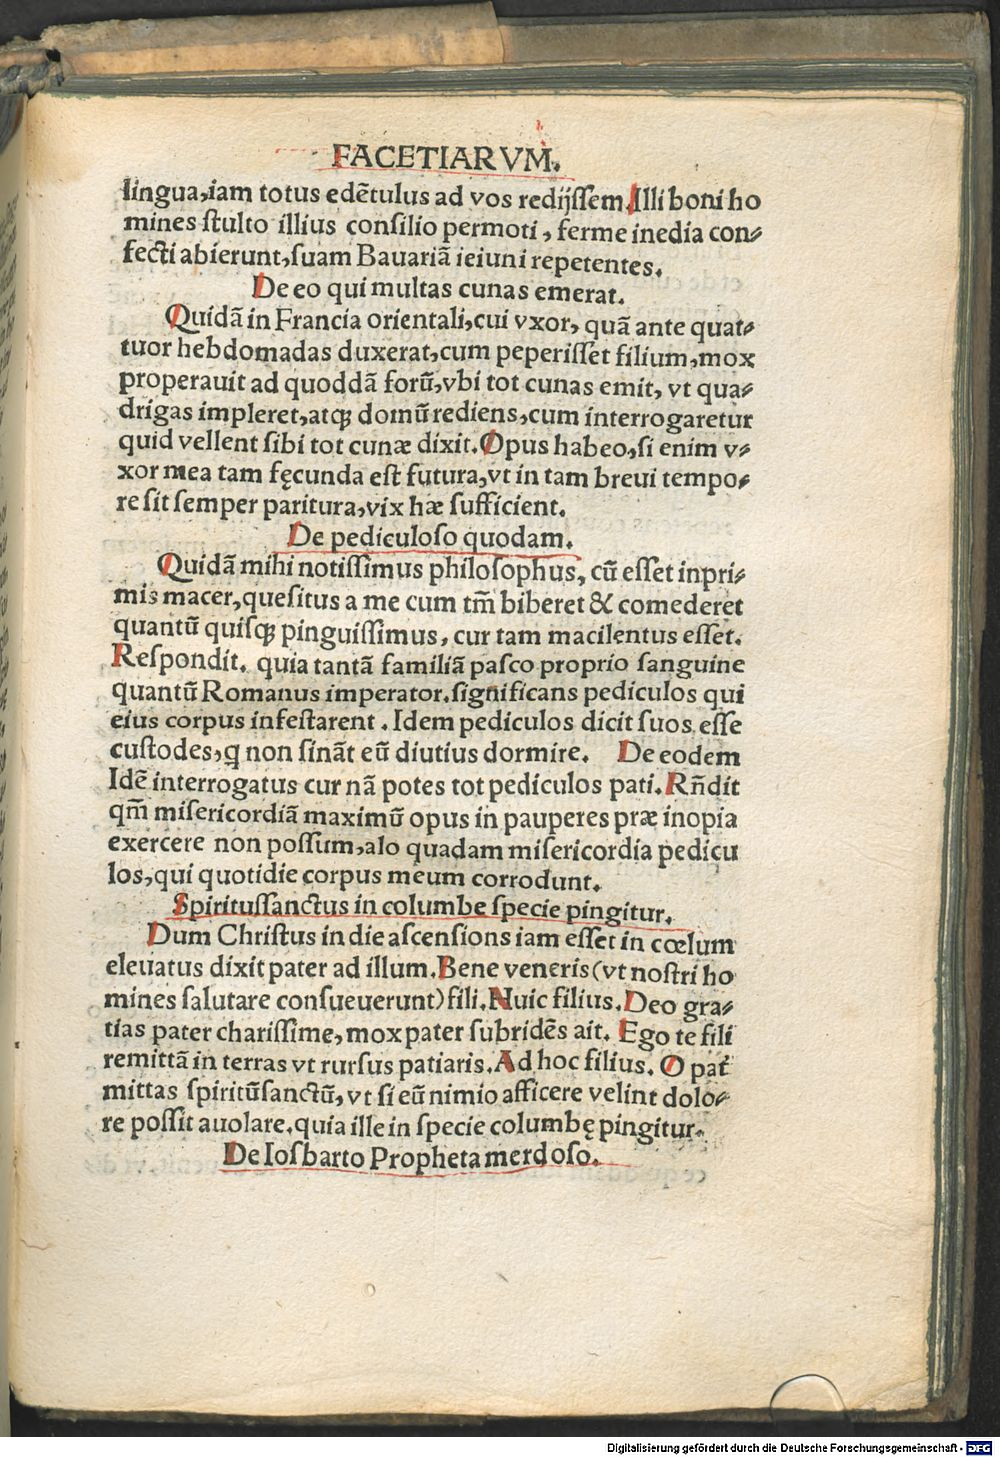 FACETIARVM.
lingua,iam totus edẽtulus ad vos redijſſem.Illi boni ho
mines ſtulto illius conſilio permoti, ferme inedia con⸗
fecti abierunt,ſuam Bauariã ieiuni repetentes.
De eo qui multas cunas emerat.
Quidã in Francia orientali,cui vxor, quã ante quat⸗
tuor hebdomadas duxerat,cum peperiſſet filium,mox
properauit ad quoddã forũ,vbi tot cunas emit, vt qua⸗
drigas impleret,atqꝫ domũ rediens,cum interrogaretur
quid vellent ſibi tot cunæ dixit.Opus habeo,ſi enim v⸗
xor mea tam fęcunda eſt futura,vt in tam breui tempo⸗
re ſit ſemper paritura,vix hæ ſufficient.
De pediculoſo quodam.
Quidã mihi notiſſimus philoſophus, cũ eſſet inpri⸗
mis macer,queſitus a me cum tm̃ biberet & comederet
quantũ quiſqꝫ pinguiſſimus, cur tam macilentus eſſet.
Reſpondit. quia tantã familiã paſco proprio ſanguine
quantũ Romanus imperator.ſignificans pediculos qui
eius corpus infeſtarent. Idem pediculos dicit ſuos eſſe
cuſtodes,q̃ non ſinãt eũ diutius dormire. De eodem
Idẽ interrogatus cur nã potes tot pediculos pati.Rñdit
qm̃ miſericordiã maximũ opus in pauperes præ inopia
exercere non poſſum,alo quadam miſericordia pedicu
los,qui quotidie corpus meum corrodunt.
Spirituſſanctus in columbe ſpecie pingitur.
Dum Chriſtus in die aſcenſions iam eſſet in cœlum
eleuatus dixit pater ad illum.Bene veneris(vt noſtri ho
mines ſalutare conſueuerunt)fili.Huic filius.Deo gra⸗
tias pater chariſſime,mox pater ſubridẽs ait. Ego te fili
remittã in terras vt rurſus patiaris.Ad hoc filius. O pat̃
mittas ſpiritũſanctũ, vt ſi eũ nimio afficere velint dolo⸗
re poſſit auolare.quia ille in ſpecie columbę pingitur.
De Iosbarto Propheta merdoſo.
Digitalisierung gefördert durch die Deutsche Forschungsgemeinschaft - DFG